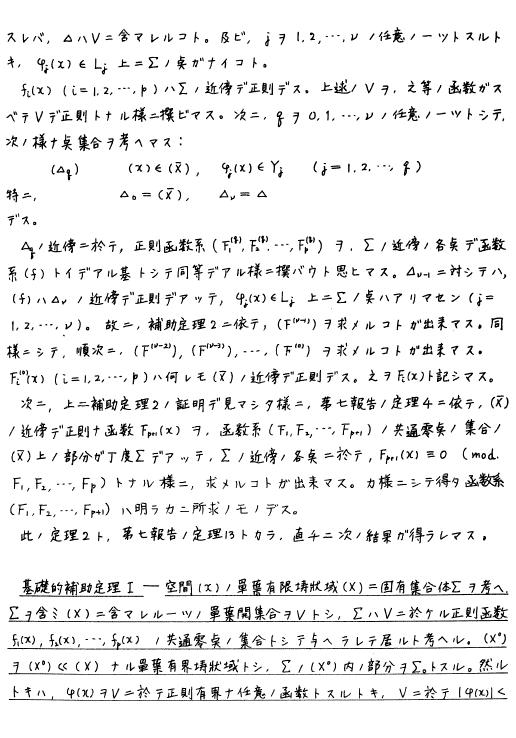 スレバ, △ハVニ含マレルコト。及ビ, jヲ1, 2, ⋯, νノ任意ノ一ツトスルト
キ, φj(x)∈Lj 上ニΣノ点ガナイコト。
fi(x) (i=1, 2, ⋯, p)ハΣノ近傍デ正則デス。上述ノVヲ, 之等ノ函数ガス
ベテVデ正則トナル様ニ撰ビマス。次ニ, qヲ0, 1, ⋯, νノ任意ノ一ツトシテ,
次ノ様ナ点集合ヲ考ヘマス:
(△q) (x)∈(X̄), φj(x)∈Yj (j=1, 2, ⋯, q)
特ニ, △0=(X̄), △ν=△
デス。
△qノ近傍ニ於テ, 正則函数系(F1^(q), F2^(q), ⋯, Fp^(q))ヲ, Σノ近傍ノ各点デ函数
系(f)トイデアル基トシテ同等デアル様ニ撰バウト思ヒマス。△ν-1ニ対シテハ,
(f)ハ△νノ近傍デ正則デアッテ, φj(x)∈Lj 上ニΣノ点ハアリマセン(j=
1, 2, ⋯, ν)。故ニ, 補助定理2ニ依テ, (F^(ν-1))ヲ求メルコトガ出来マス。同
様ニシテ, 順次ニ, (F^(ν-2)), (F^(ν-3)), ⋯, (F^(0))ヲ求メルコトガ出来マス。
Fi^(0)(x) (i=1, 2, ⋯, p)ハ何レモ(X̄)ノ近傍デ正則デス。之ヲFi(x)ト記シマス。
次ニ, 上ニ補助定理2ノ証明デ見マシタ様ニ, 第七報告ノ定理4ニ依テ, (X̄)
ノ近傍デ正則ナ函数Fp+1(x)ヲ, 函数系(F1, F2, ⋯, Fp+1)ノ共通零点ノ集合ノ
(X̄)上ノ部分ガ丁度Σデアッテ, Σノ近傍ノ各点ニ於テ, Fp+1(x)≡0 (mod.
F1, F2, ⋯, Fp)トナル様ニ, 求メルコトガ出来マス。カ様ニシテ得タ函数系
(F1, F2, ⋯, Fp+1)ハ明ラカニ所求ノモノデス。
此ノ定理2ト, 第七報告ノ定理13トカラ, 直チニ次ノ結果ガ得ラレマス。
基礎的補助定理I — 空間(x)ノ單葉有限境状域(X)ニ固有集合体Σヲ考ヘ,
Σヲ含ミ(X)ニ含マレル一ツノ單葉開集合ヲVトシ, ΣハVニ於ケル正則函数
f1(x), f2(x), ⋯, fp(x)ノ共通零点ノ集合トシテ与ヘラレテ居ルト考ヘル。(X⁰)
ヲ(X⁰)≪(X)ナル單葉有界境状域トシ, Σノ(X⁰)内ノ部分ヲΣ0トスル。然ル
トキハ, φ(x)ヲVニ於テ正則有界ナ任意ノ函数トスルトキ, Vニ於テ|φ(x)|<